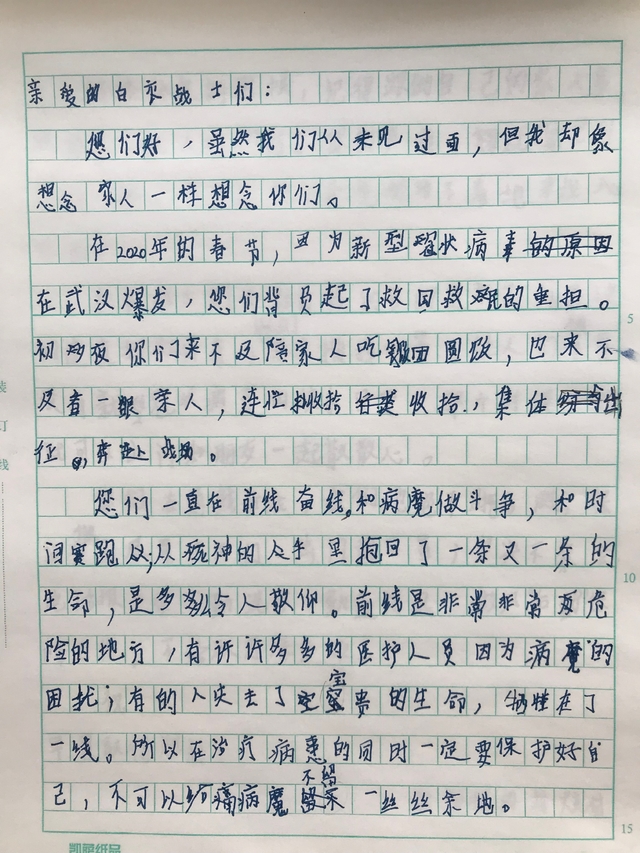 亲爱的白衣战士们：
您们好，虽然我们从未见过面，但我却像
想念家人一样想念你们。
在2020年的春节，因为新型冠状病毒的原因
在武汉爆发，您们背负起了救国救难的重担。
初夕夜你们来不及陪家人吃团圆饭，也来不
及看一眼亲人，连忙收拾收拾，集体出
征，奔赴战场。
您们一直在前线奋线，和病魔做斗争，和时
间赛跑，从死神的手里抱回了一条又一条的
生命，是多么令人敬仰。前线是非常非常危
险的地方，有许许多多的医护人员因为病魔的
困扰；有的人失去了宝贵的生命，牺牲在了
一线。所以在治疗病患的同时一定要保护好自
己，不可以给病魔不留一丝丝余地。
5
10
15
装
订
线
凯丽纸品